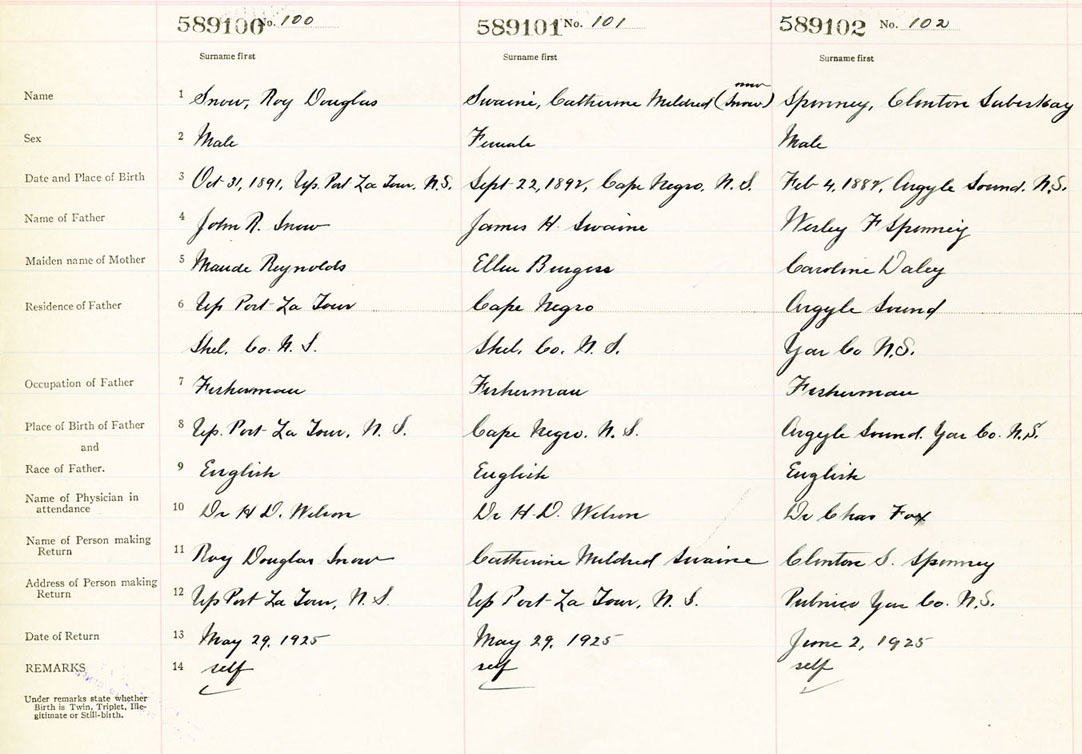 589100 No. 100 589101 No. 101 589102 No. 102
Surname first Surname first Surname first
now
Name 1 Snow, Roy Douglas Swaine, Catherine Mildred (Snow) Sponney, Clinton
Sex 2 Male Female Male
Date and Place of Birth 3 Oct 31, 1891, Up. Port La Tour, N.S. Sept 22, 1892, Cape Negro, N. S. Feb 4, 1882, Argyle Sound, N.S.
Name of Father 4 John R. Snow James H. Swaine Wesley F Sponney
Maiden name of Mother 5 Maude Reynolds Ellen Burgess Caroline Daley
Residence of Father 6 Up Port La Tour Cape Negro Argyle Sound
Shel. Co. N. S. Shel. Co. N. S. Yar Co N.S.
Occupation of Father 7 Fisherman Fisherman Fisherman
Place of Birth of Father 8 Up. Port La Tour, N. S. Cape Negro, N. S. Argyle Sound. Yar Co. N.S.
and
Race of Father. 9 English English English
Name of Physician in
attendance 10 Dr H. D. Wilson Dr H. D. Wilson Dr Chas Fox
Name of Person making
Return 11 Roy Douglas Snow Catherine Mildred Swaine Clinton S. Sponney
Address of Person making
Return 12 Up Port La Tour, N. S. Up Port La Tour, N. S. Pubnico Yar Co. N.S.
Date of Return 13 May 29, 1925 May 29, 1925 June 2, 1925
REMARKS 14 self self self
Under remarks state whether
Birth is Twin, Triplet, Ille-
gitimate or Still-birth.